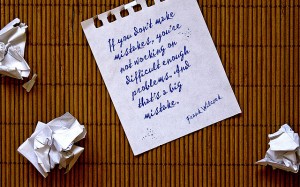 If you don't make
mistakes, you're
not working on
difficult enough
problems. And
that's a big
mistake.
Frank Wilczek